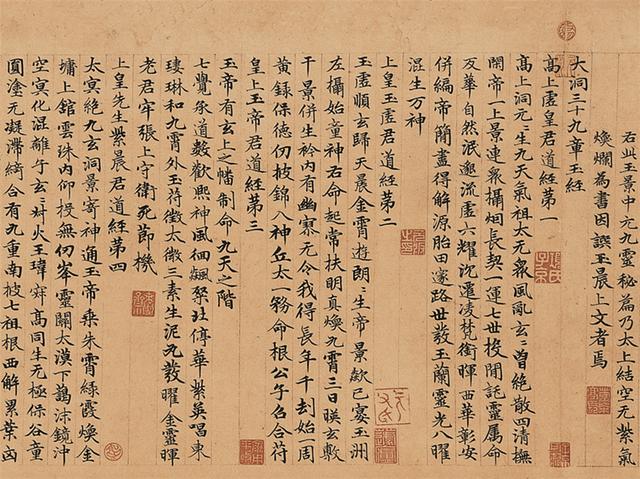 右此玉景中元九靈秘篇乃太上結空元紫氣
煥爛為書因譔玉晨上文者焉
大洞三十九章玉經
高上虛皇君道經第一
高上洞元元生九天氣祖太元象風亂玄玄曾絕散四清撫
閑帝一上景連象攝烟長契一運七世投閒託靈屬命
友華自然泯邈流虛六耀沈遷凌梵衛暉西華彰安
併編帝簡盡得解源胎田遂路世發玉蘭靈光八曜
混生万神
上皇玉虛君道經第二
玉虛順玄歸天晨金霄遊朗朗生帝景歘已宴玉洲
左攝始童神右命起常扶明真煥九霄三日暎玄敷
千景併生衿內有幽寥无令我得長年千刦始一周
黄錄保德仞披錦八神丘太一務命根公子名合符
皇上玉帝君道經第三
玉帝有玄上之幡制命九天之階
七覺承道數歡熙神風徊飈黎廷停華紫英唱東
瑧琳和九霄外玉符徵太微三素生泥丸發曜金靈暉
老君宰張上守衛死節機
上皇先生紫晨君道經第四
太冥絕九玄洞景寄神通玉帝乘朱霄綠霞煥金
墉上館雲珠内仰投無仞峯靈關太漠下藹沫鏡沖
空冥化混離子玄玄對火王璋寂高同生无極保谷童
圓塗无凝滯綺合有九重南披七祖根西解累葉凶